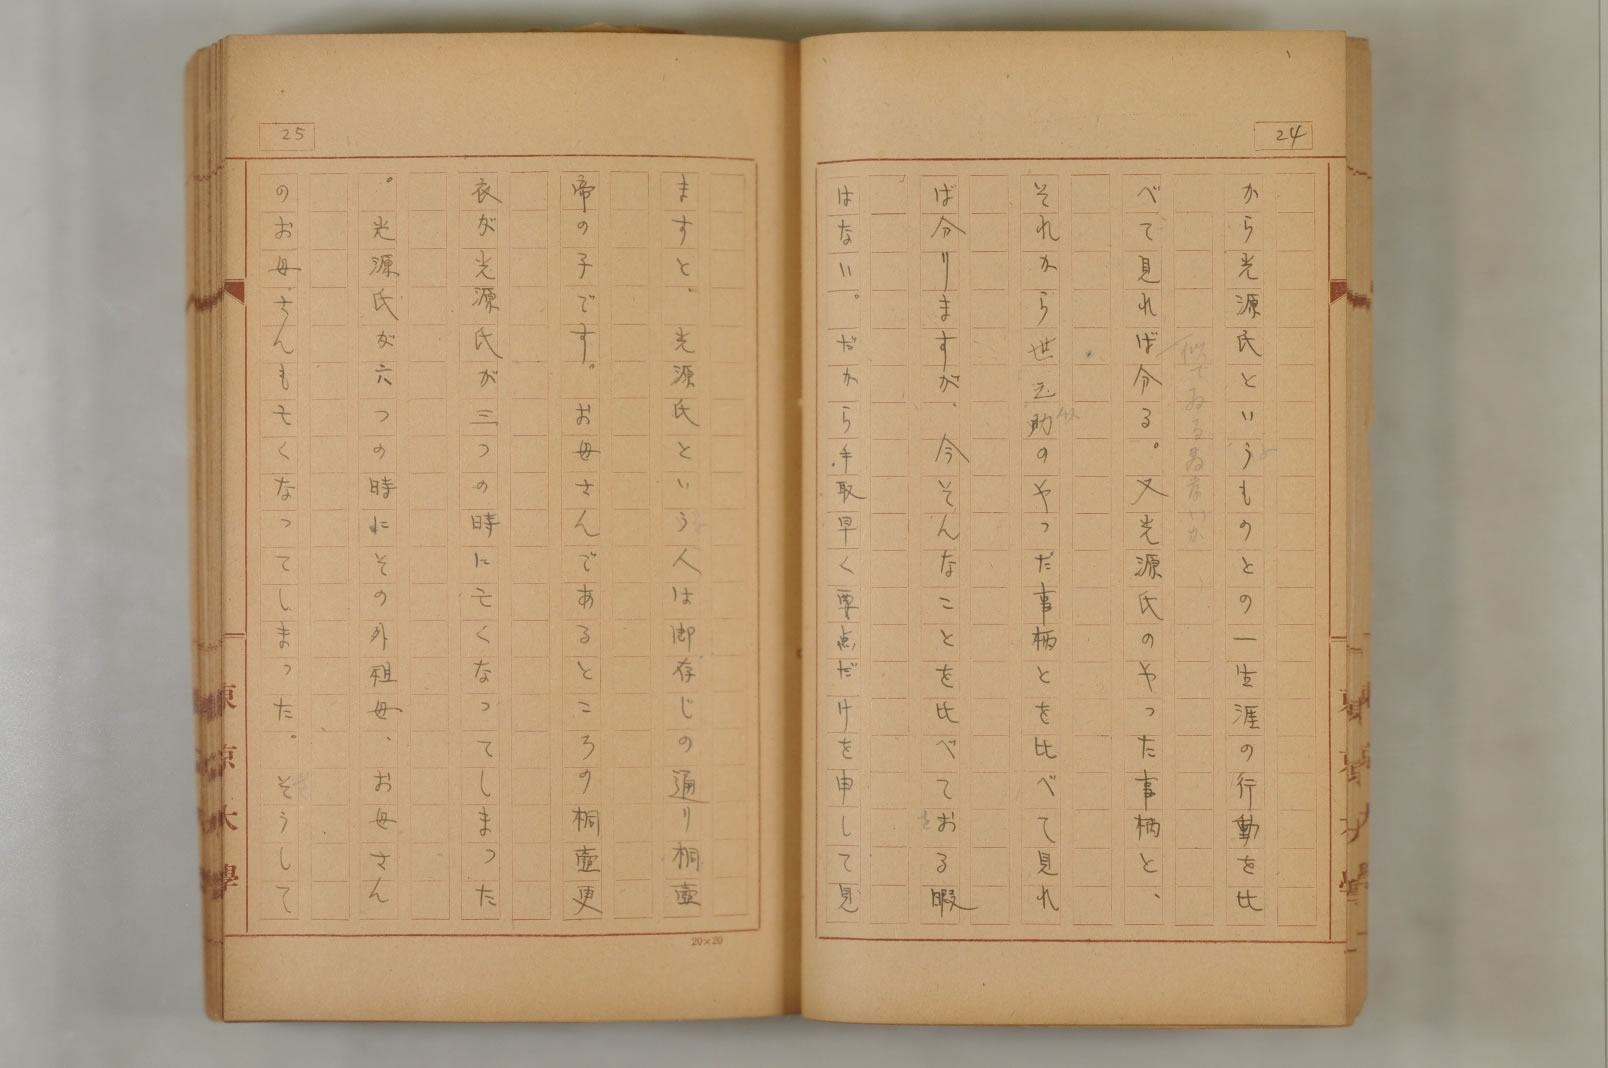 24
から光源氏というものとの一生涯の行動を比
べて見れば分る。又光源氏のやった事柄と、
それから世之助のやった事柄とを比べて見れ
ば分りますが、今そんなことを比べておる暇
はない。だから手取早く要点だけを申して見
25
ますと、光源氏という人は御存じの通り桐壷
帝の子です。お母さんであるところの桐壷更
衣が光源氏が三つの時に亡くなってしまった
。光源氏が六つの時にその外祖母、お母さん
のお母さんも亡くなってしまった。そうして
20×20
東京大學